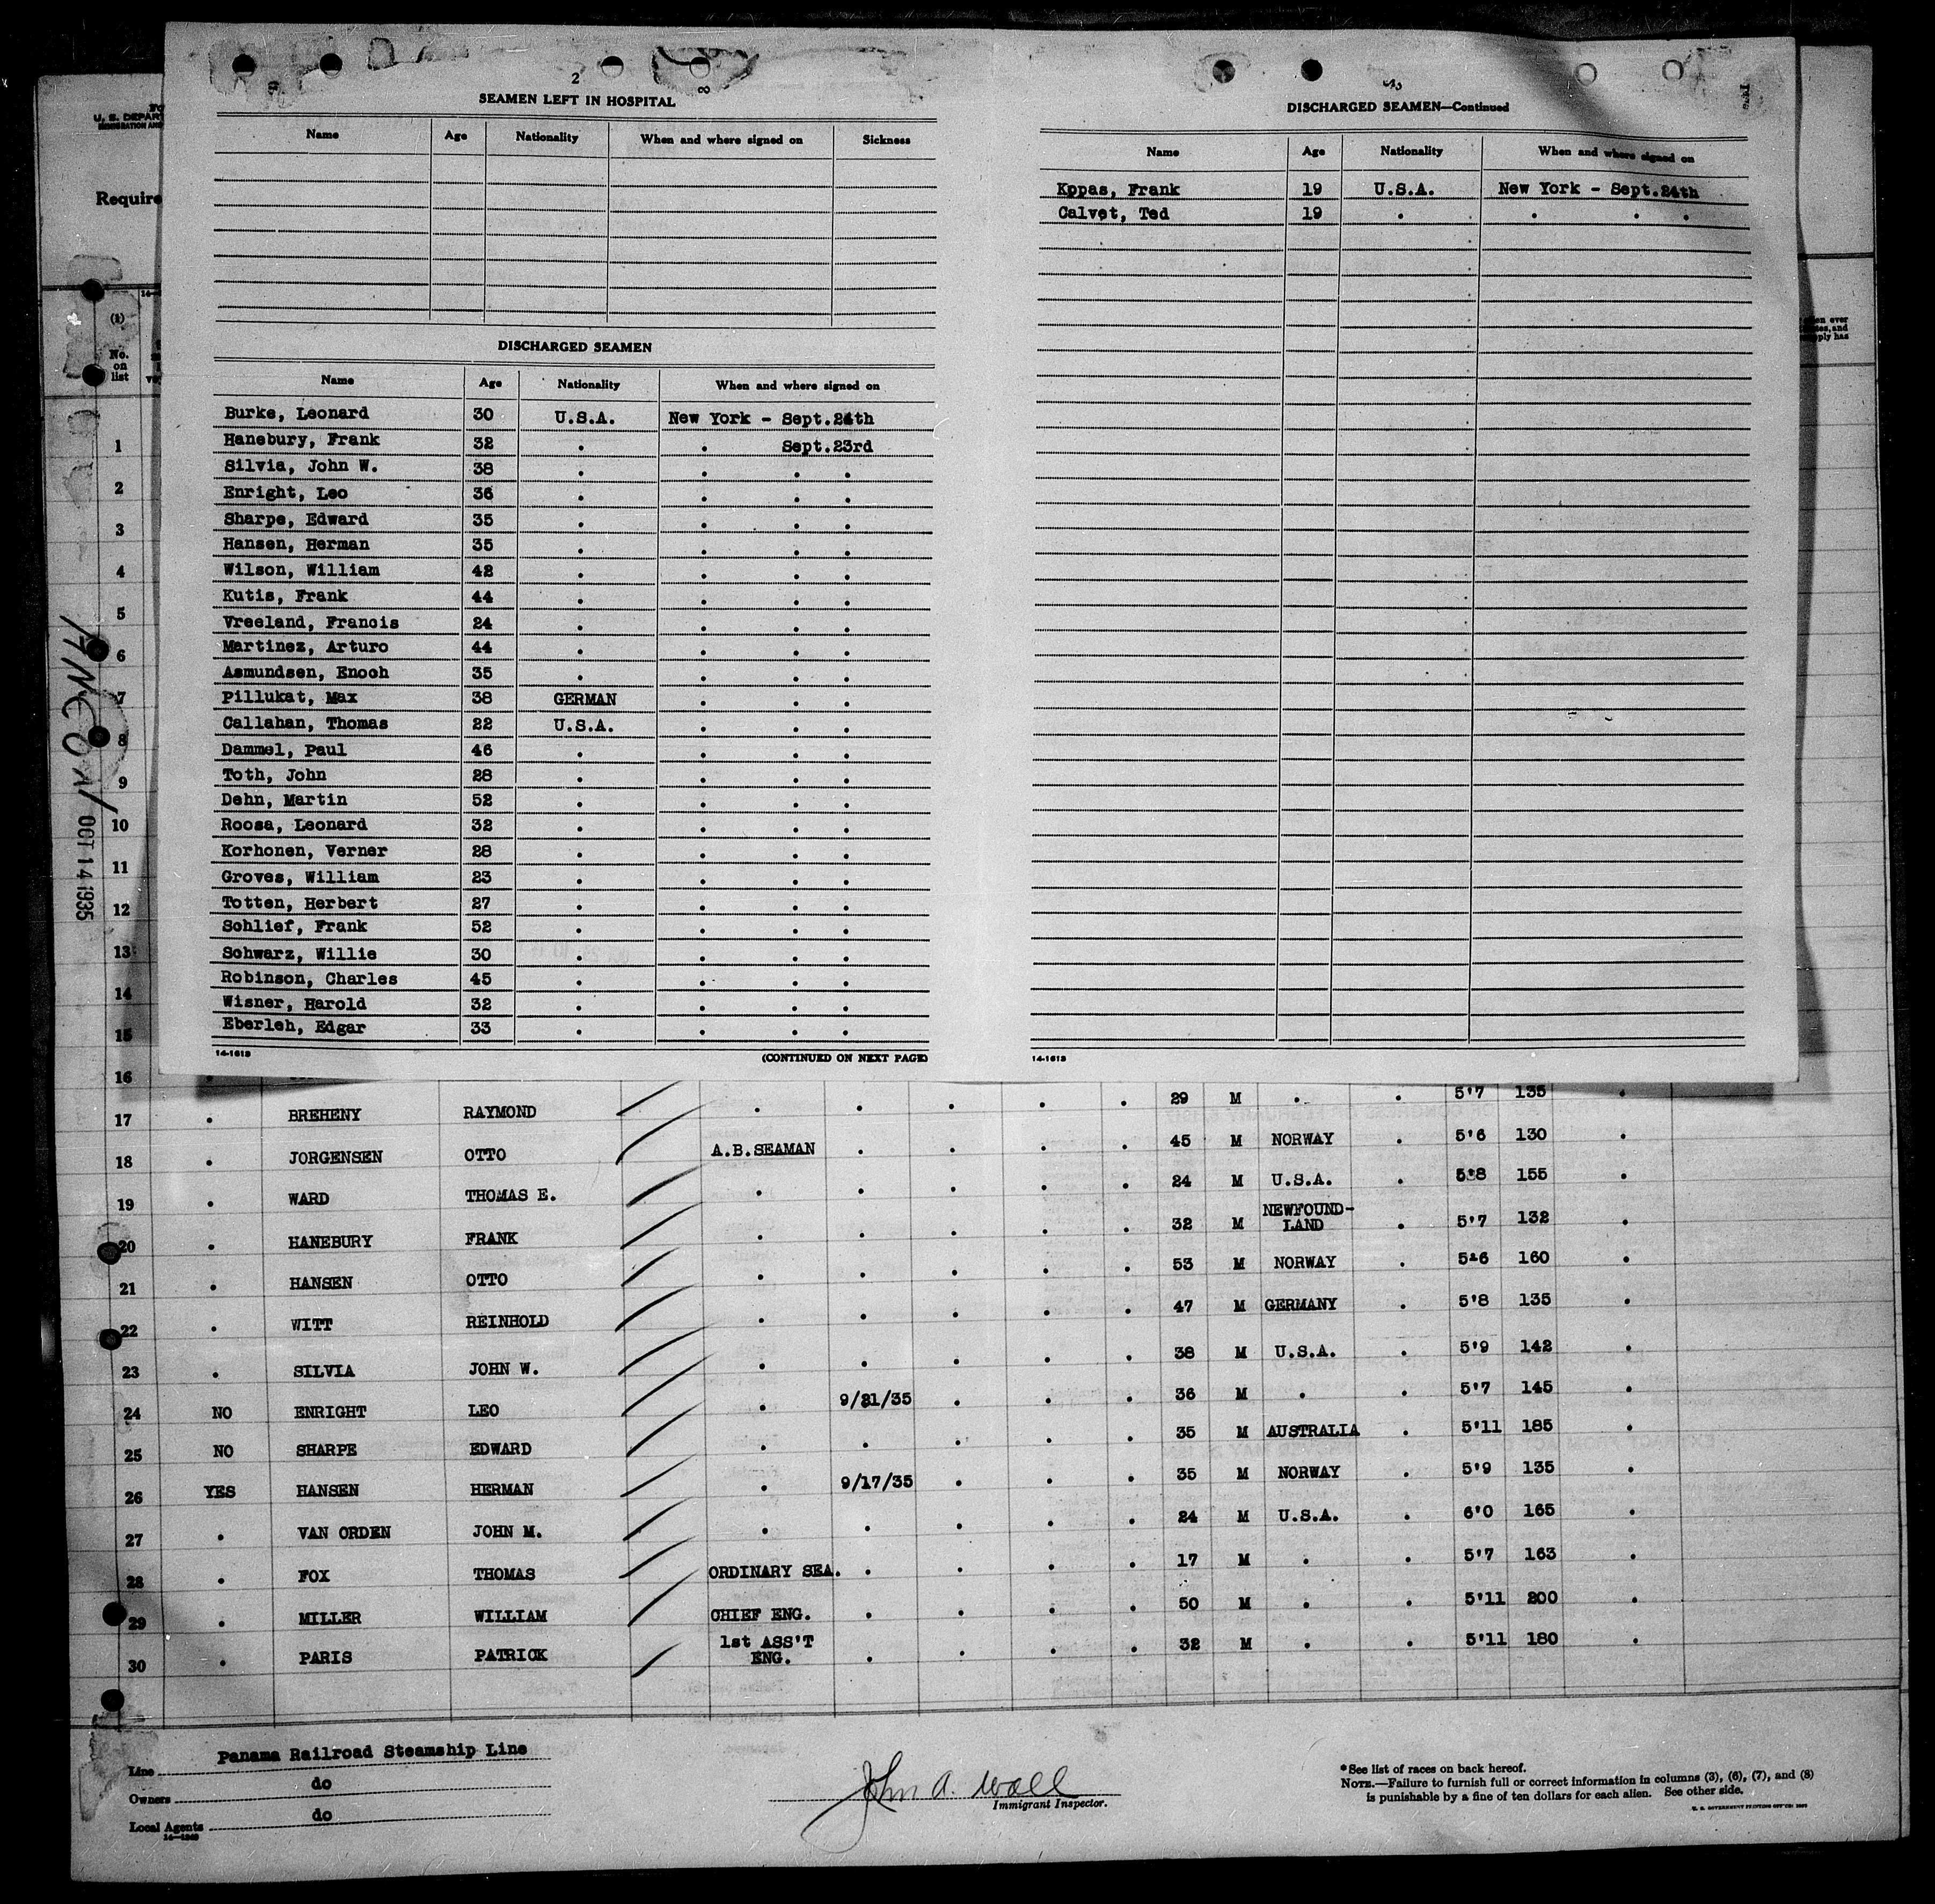 2
SEAMEN LEFT IN HOSPITAL
8
Name Age Nationality When and where signed on Sickness
DISCHARGED SEAMEN
Name Age Nationality When and where signed on
Burke, Leonard 30 U.S.A. New York - Sept.24th
Hanebury, Frank 32 . . Sept.23rd
Silvia, John W. 38 . . . .
Enright, Leo 36 . . . .
Sharpe, Edward 35 . . . .
Hansen, Herman 35 . . . .
Wilson, William 42 . . . .
Kutis, Frank 44 . . . .
Vreeland, Francis 24 . . . .
Martinez, Arturo 44 . . . .
Asmundsen, Enoch 35 . . . .
Pillukat, Max 38 GERMAN . . .
Callahan, Thomas 22 U.S.A. . . .
Dammel, Paul 46 . . . .
Toth, John 28 . . . .
Dehn, Martin 52 . . . .
Roosa, Leonard 32 . . . .
Korhonen, Verner 28 . . . .
Groves, William 23 . . . .
Totten, Herbert 27 . . . .
Schlief, Frank 52 . . . .
Schwarz, Willie 30 . . . .
Robinson, Charles 45 . . . .
Wisner, Harold 32 . . . .
Eberleh, Edgar 33 . . . .
14-1613 (CONTINUED ON NEXT PAGE)
DISCHARGED SEAMEN—Continued
Name Age Nationality When and where signed on
Kppas, Frank 19 U.S.A. New York - Sept.24th
Calvet, Ted 19 . . . . .
14-1613
U. S. DEPAR
Require
(1)
No.
on
list
1
2
3
4
5
6
7
8
9
10
11
12
13
14
15
16
ANCON
OCT 14 1935
29 M . . 5'7 135 .
17 . BREHENY RAYMOND . . . . .
45 M NORWAY . 5'6 130 .
18 . JORGENSEN OTTO A.B.SEAMAN . . . .
24 M U.S.A. . 5'8 155 .
19 . WARD THOMAS E. . . . . .
32 M NEWFOUND-LAND . 5'7 132 .
20 . HANEBURY FRANK . . . . .
53 M NORWAY . 5-6 160 .
21 . HANSEN OTTO . . . . .
47 M GERMANY . 5'8 135 .
22 . WITT REINHOLD . . . . .
38 M U.S.A. . 5'9 142 .
23 . SILVIA JOHN W. . . . . .
36 M . . 5'7 145 .
24 NO ENRIGHT LEO . 9/21/35 . . .
35 M AUSTRALIA . 5'11 185 .
25 NO SHARPE EDWARD . . . . .
35 M NORWAY . 5'9 135 .
26 YES HANSEN HERMAN . 9/17/35 . . .
24 M U.S.A. . 6'0 165 .
27 . VAN ORDEN JOHN M. . . . . .
17 M . . 5'7 163 .
28 . FOX THOMAS ORDINARY SEA. . . . .
50 M . . 5'11 200 .
29 . MILLER WILLIAM CHIEF ENG. . . . .
32 M . . 5'11 180 .
30 . PARIS PATRICK 1st ASS'T ENG. . . . .
Line Panama Railroad Steamship Line
Owners do
Local Agents do
John A. Wall
Immigrant Inspector.
*See list of races on back hereof.
NOTE.—Failure to furnish full or correct information in columns (3), (6), (7), and (8)
is punishable by a fine of ten dollars for each alien. See other side.